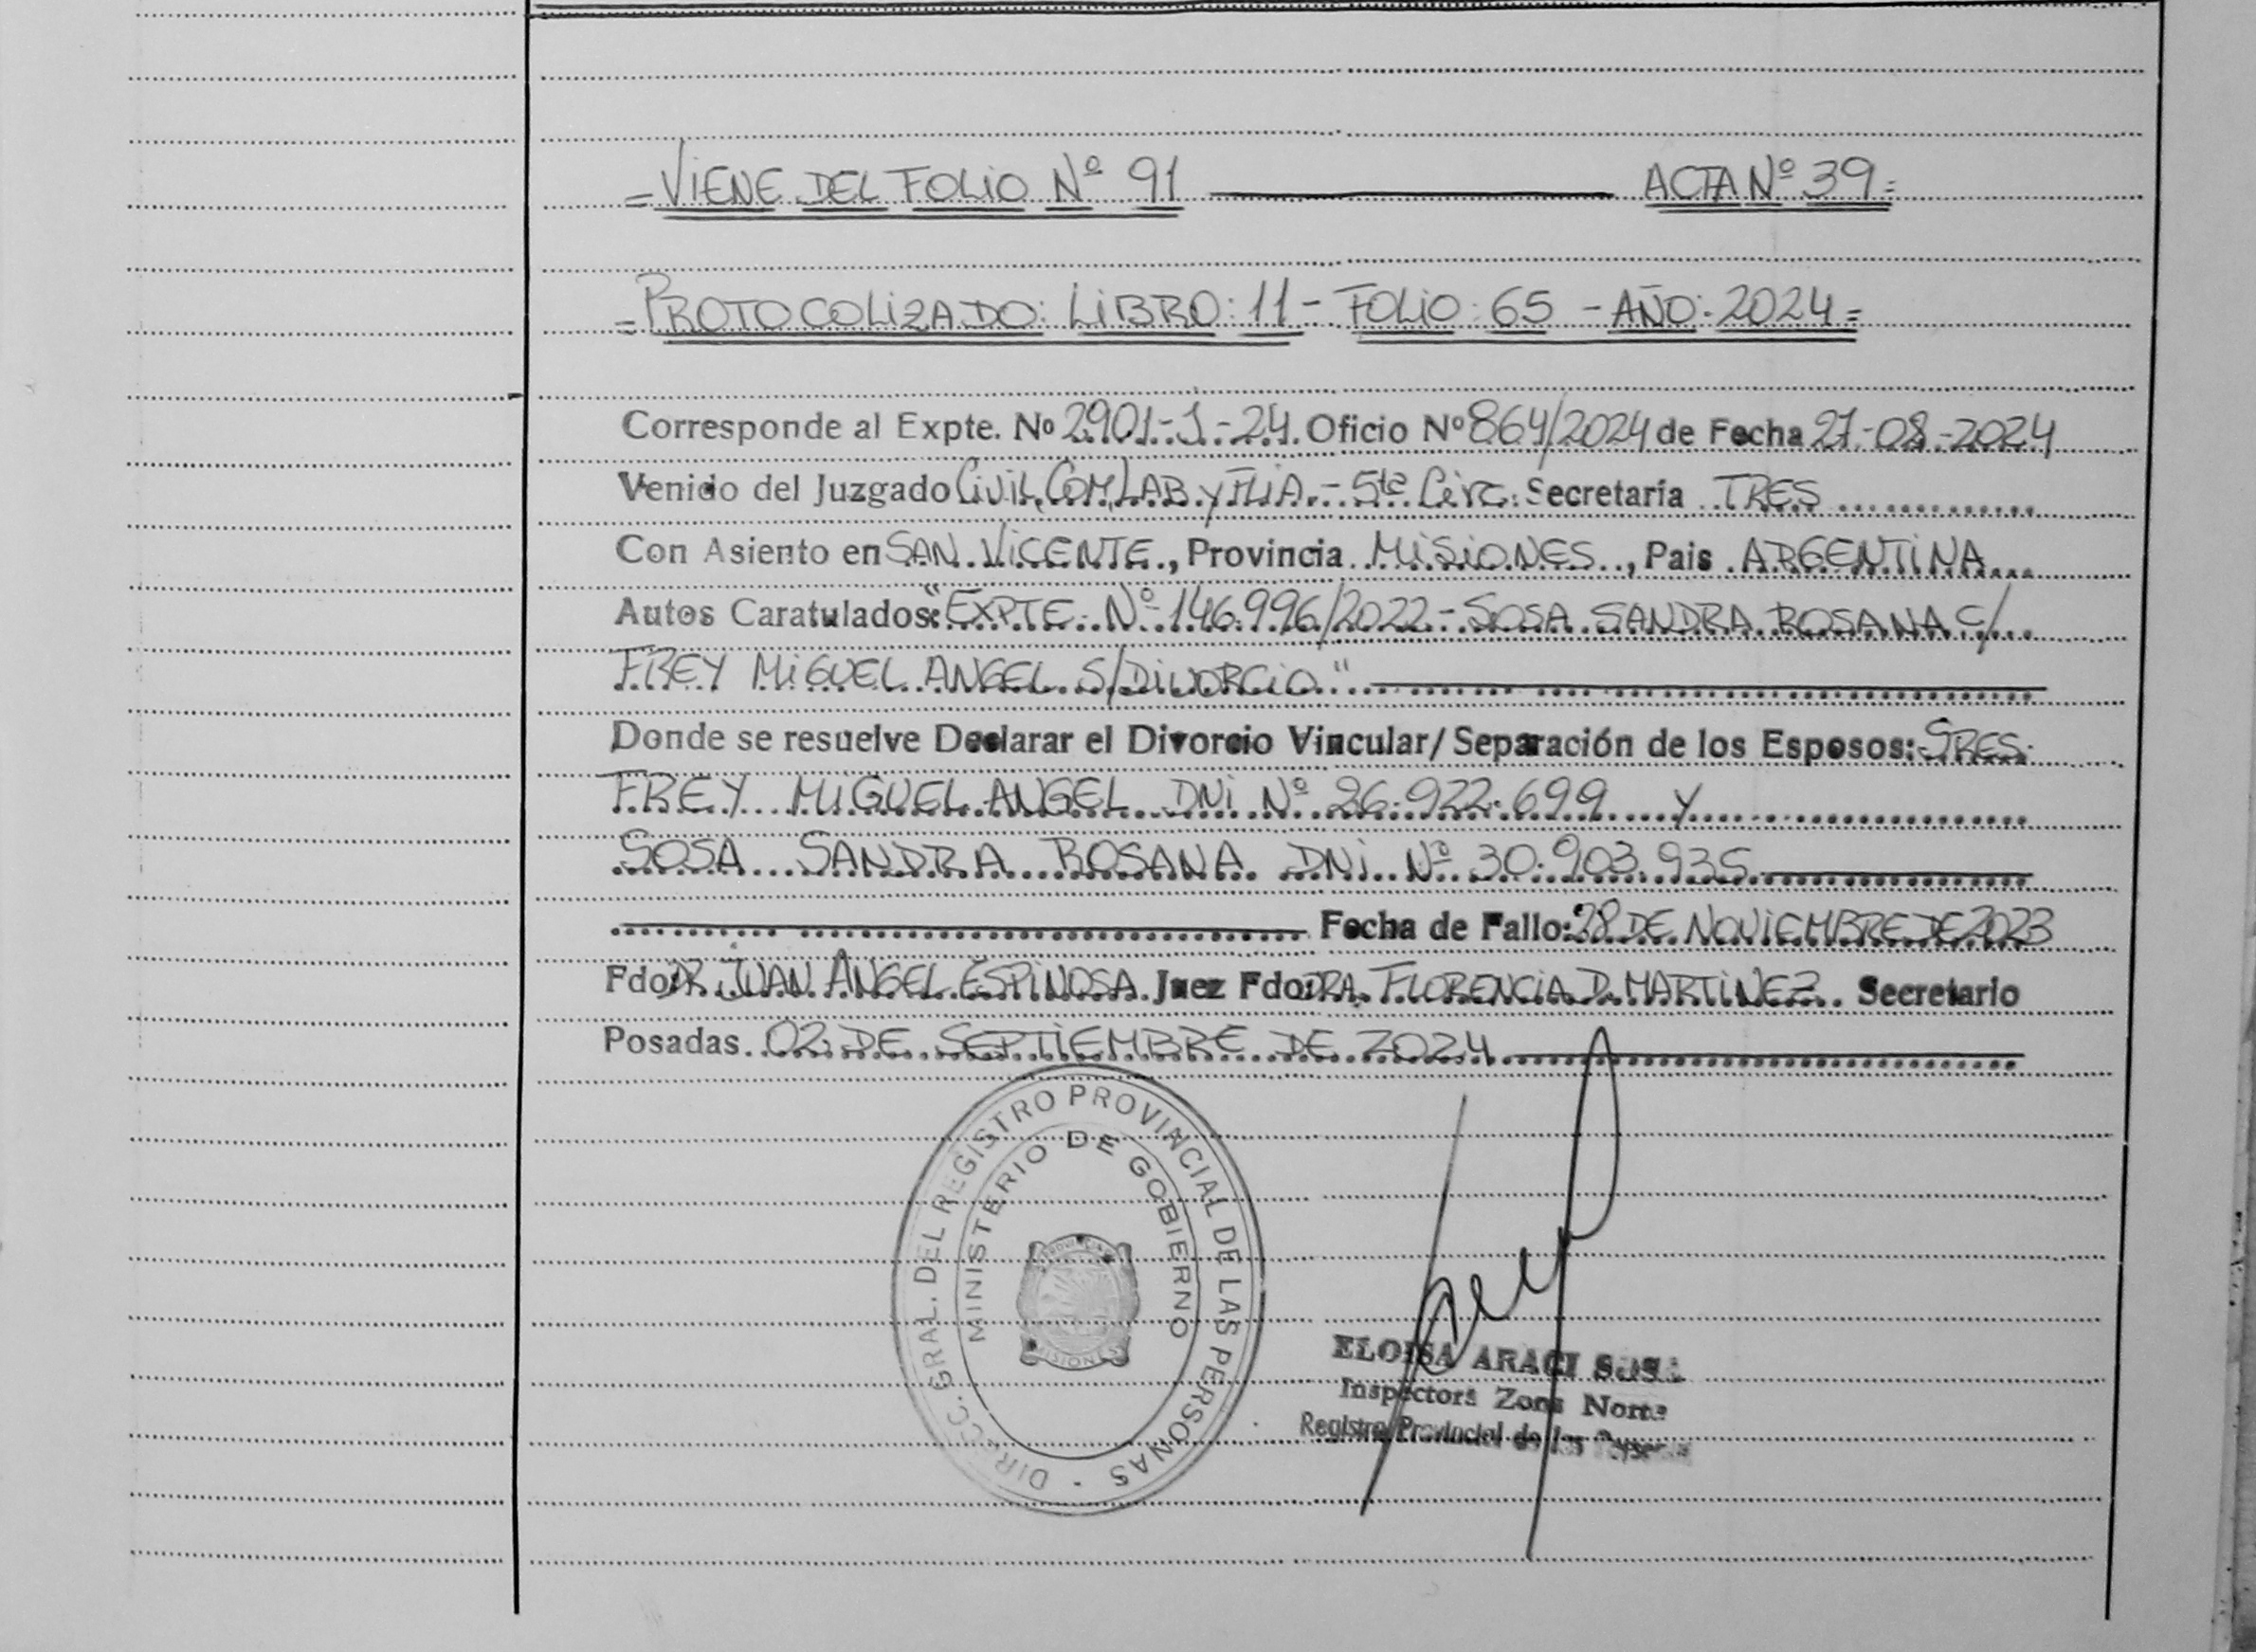 =VIENE DEL FOLIO Nº 91 ACTA Nº 39=
=PROTOCOLIZADO: LIBRO: 11 - FOLIO: 65 - AÑO: 2024=
Corresponde al Expte. Nº 2901-J-24. Oficio Nº 864/2024 de Fecha 27-08-2024
Venido del Juzgado Civil, COM, LAB. y FLIA.- 5ta Circ. Secretaría TRES
Con Asiento en SAN VICENTE, Provincia MISIONES, Pais ARGENTINA
Autos Caratulados: "EXPTE. Nº 146.996/2022 - SOSA SANDRA ROSANA C/
FREY MIGUEL ANGEL S/DIVORCIO"
Donde se resuelve Declarar el Divorcio Vincular/Separación de los Esposos: SRES.
FREY MIGUEL ANGEL DNI Nº 26.922.699 y
SOSA SANDRA ROSANA DNI Nº 30.903.935
Fecha de Fallo: 28 DE NOVIEMBRE DE 2023
Fdo: DR. JUAN ANGEL ESPINOSA. Juez Fdo: DRA. FLORENCIA D. MARTINEZ. Secretario
Posadas. 02 DE SEPTIEMBRE DE 2024
DIRECC. GRAL. DEL REGISTRO PROVINCIAL DE LAS PERSONAS -
MINISTERIO DE GOBIERNO
PROVINCIA
MISIONES
ELOISA ARACI
Inspectora Zona Norte
Registro Provincial de las